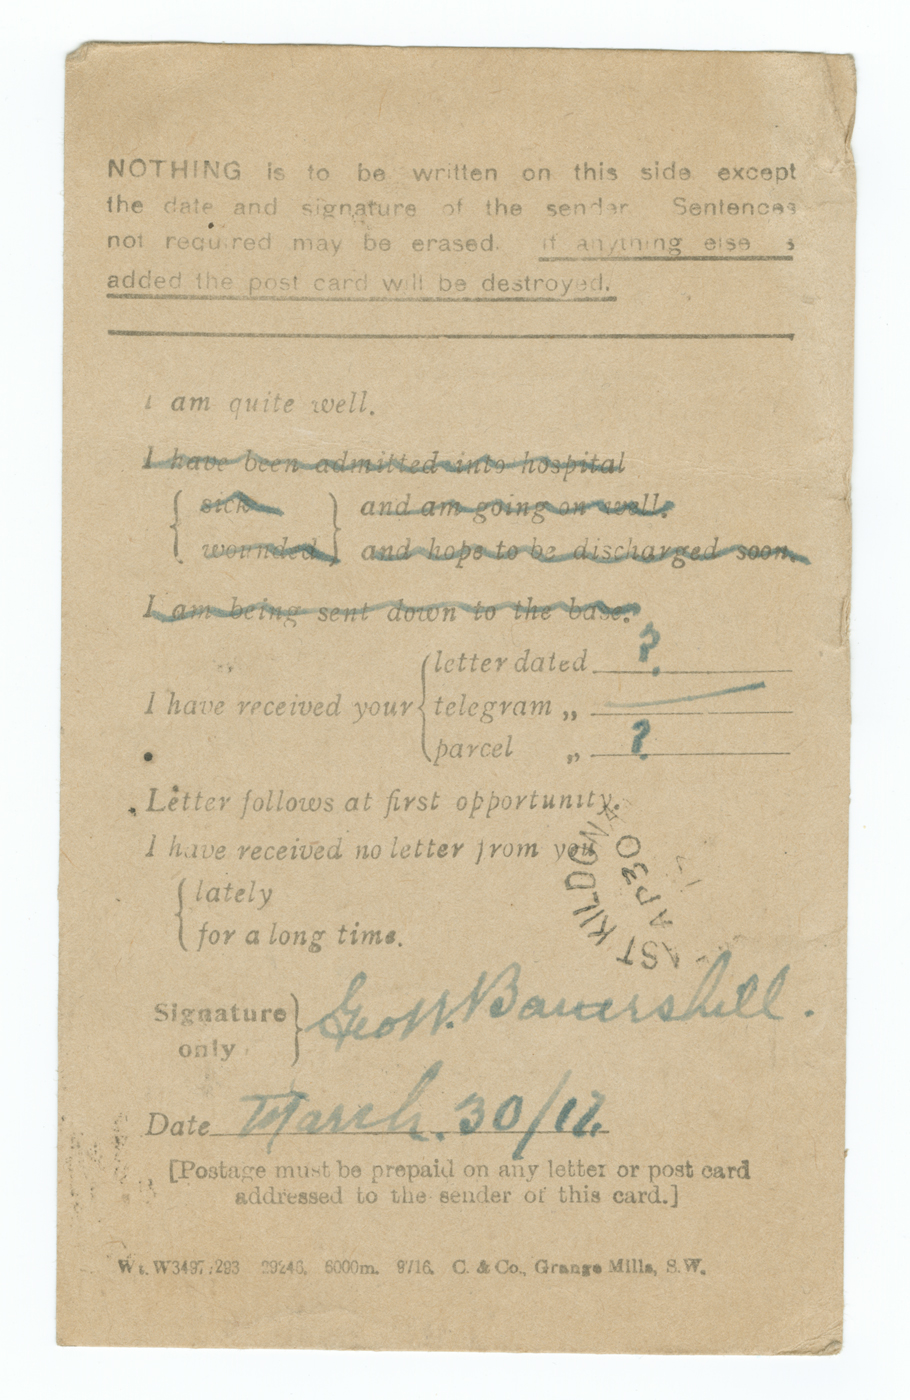 NOTHING is to be written on this side except
the date and signature of the sender. Sentences
not required may be erased. If anything else is
added the post card will be destroyed.
I am quite well.
I have been admitted into hospital
sick and am going on well.
wounded and hope to be discharged soon.
I am being sent down to the base.
letter dated ?
I have received your telegram „
parcel „ ?
Letter follows at first opportunity.
I have received no letter from you
lately
for a long time.
ST KILDONA
AP 30
17
Signature
only
Geo W. Bowershill.
Date March. 30/17.
[Postage must be prepaid on any letter or post card
addressed to the sender of this card.]
Wt. W3497/293 29246. 6000m. 9/16. C. & Co., Grange Mills, S.W.